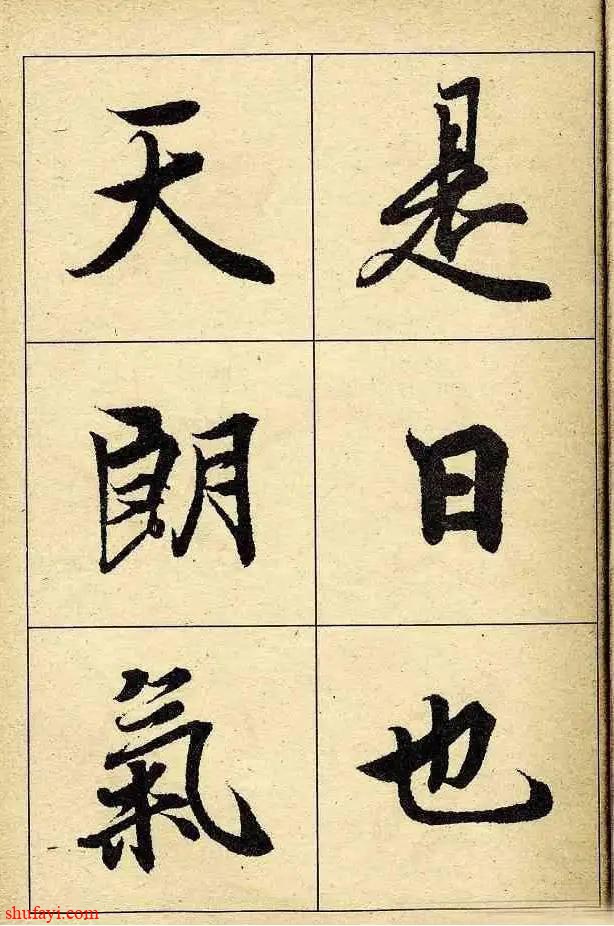 是日也
天朗氣
shufayi.com